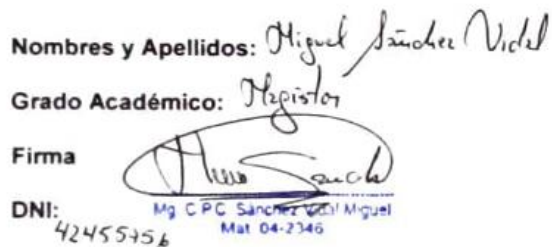 Nombres y Apellidos: Miguel Sánchez Vidal
Grado Académico: Magister
Firma
Mg. C.P.C. Sánchez Vidal Miguel
Mat. 04-2346
DNI: